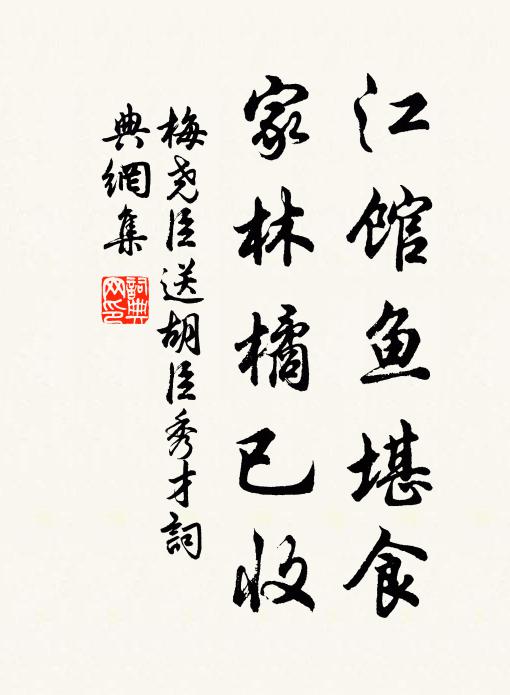 江馆鱼堪食
家林橘已收
梅尧臣送胡臣秀才詞
典網集
詞典
网印